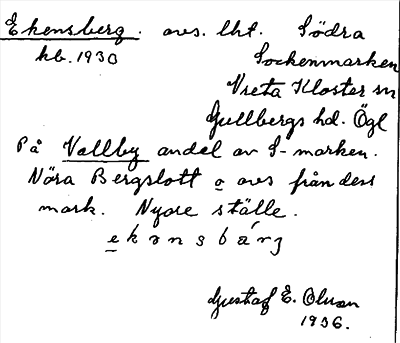 Ekensberg. avs. lht. Södra
kb. 1930 Sockenmarken
Vreta Kloster sn
Gullbergs hd. Ögl
På Vallby andel av S-marken.
Nära Bergslott o avs från dess
mark. Nyare ställe.
ekǝnsbárj
Gustaf E. Olsson
1936.